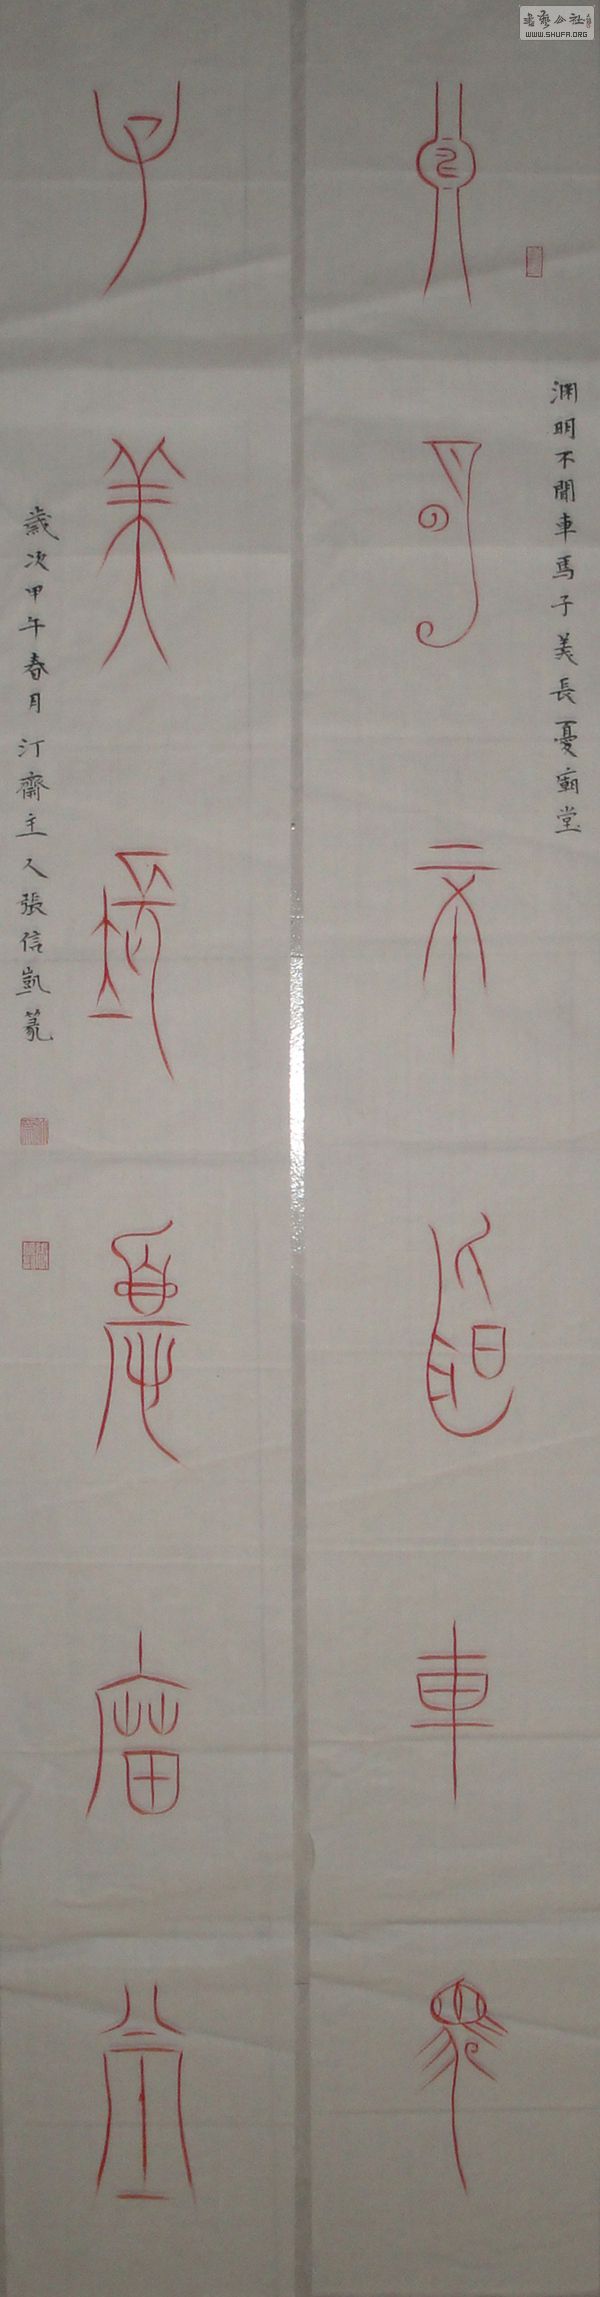 渊明不聞車馬
渊明不聞車馬子美長憂廟堂
子美長憂廟堂
歲次甲午春月汀齋主人張信凱篆
書藝公社
WWW.SHUFA.ORG